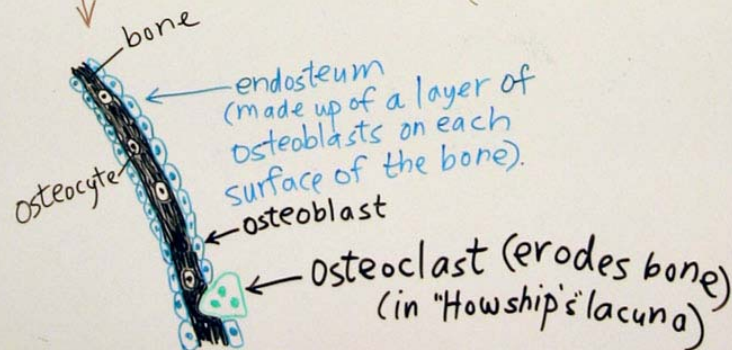 bone
endosteum
(made up of a layer of
osteoblasts on each
surface of the bone).
osteocyte
osteoblast
osteoclast (erodes bone)
(in "Howship's" lacuna)